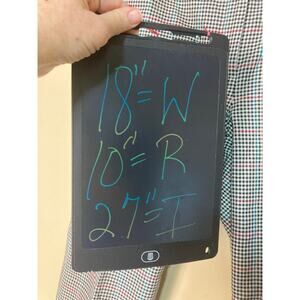 18"=W
10"=R
27"=I